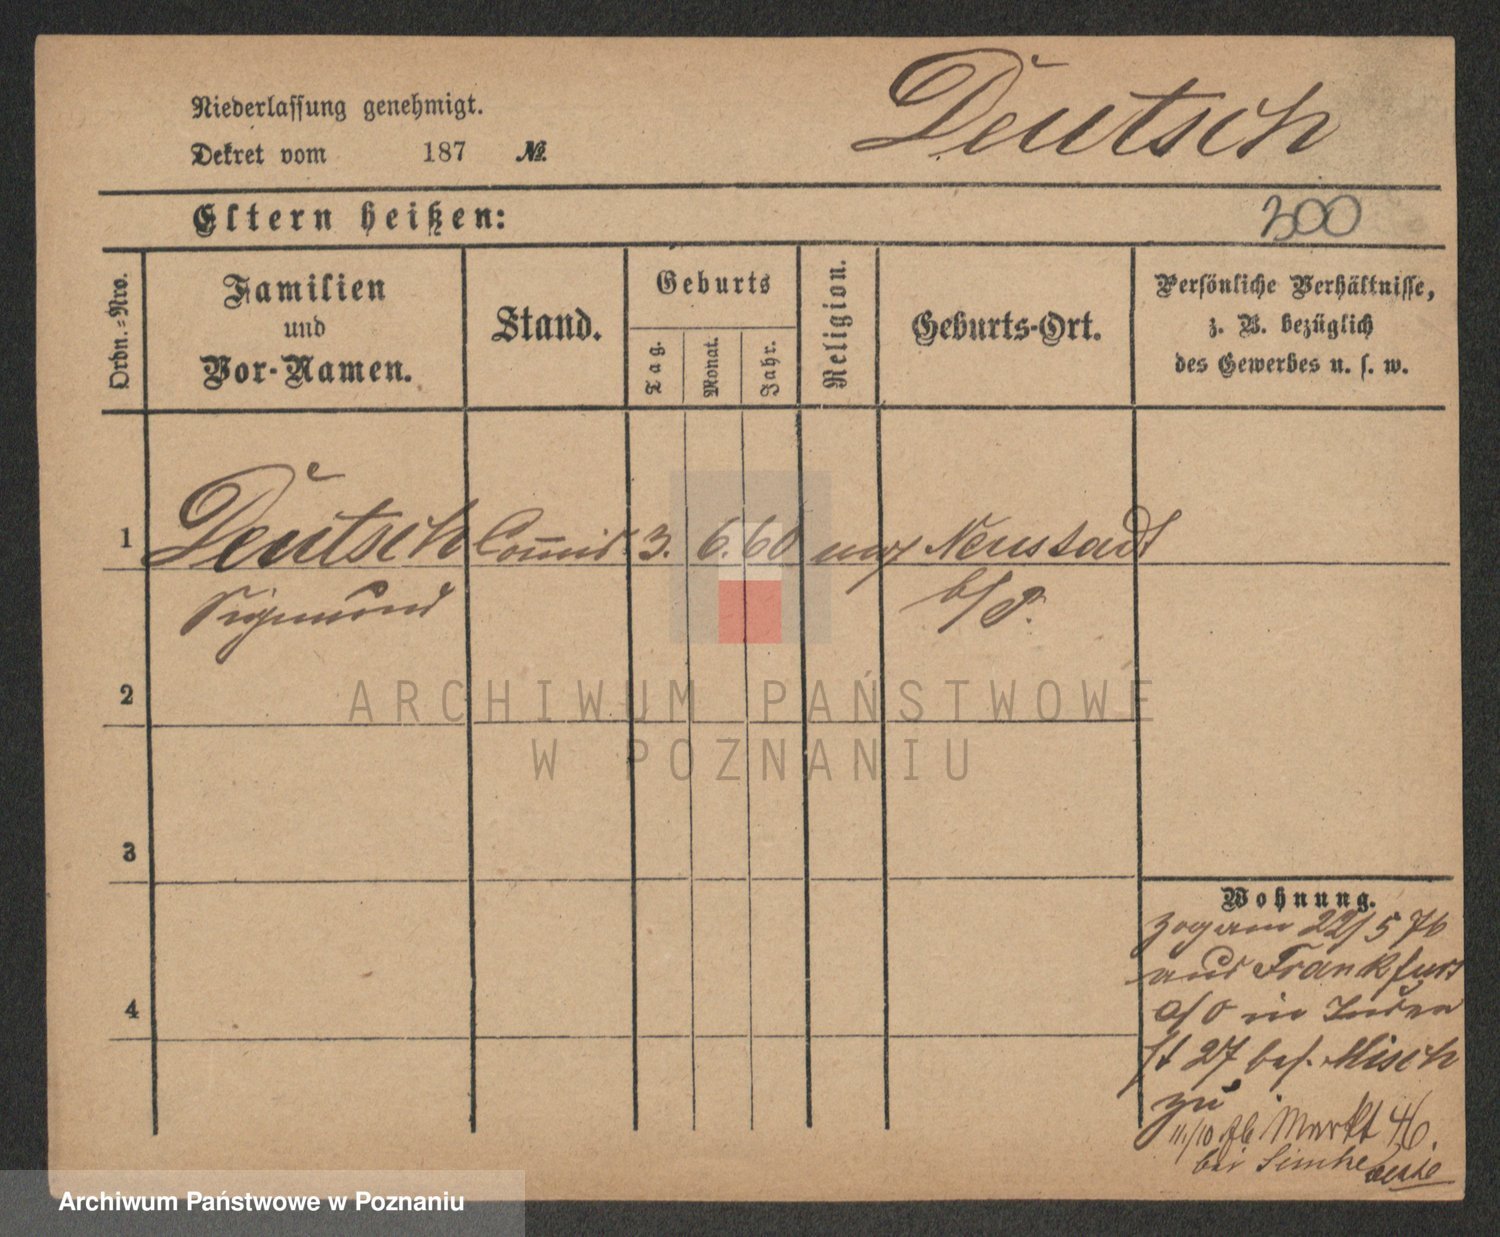 Niederlassung genehmigt.
Dekret vom 187 №.
Deutsch
Eltern heißen:
300
Ordn.-Nro.
Familien
und
Vor-Namen.
Stand.
Geburts
Tag.
Monat.
Jahr.
Religion.
Geburts-Ort.
Persönliche Verhältnisse,
z. B. bezüglich
des Gewerbes u. s. w.
1 Deutsch Commis 3. 6. 60 Neustadt
Sigmund b/P.
2
ARCHIWUM PAŃSTWOWE
W POZNANIU
3
4
Wohnung.
zog am 22/5 76
aus Frankfurt
a/O in Juden
st 27 bei Misch
zu
11./10 Markt 46.
bei Simke
Archiwum Państwowe w Poznaniu